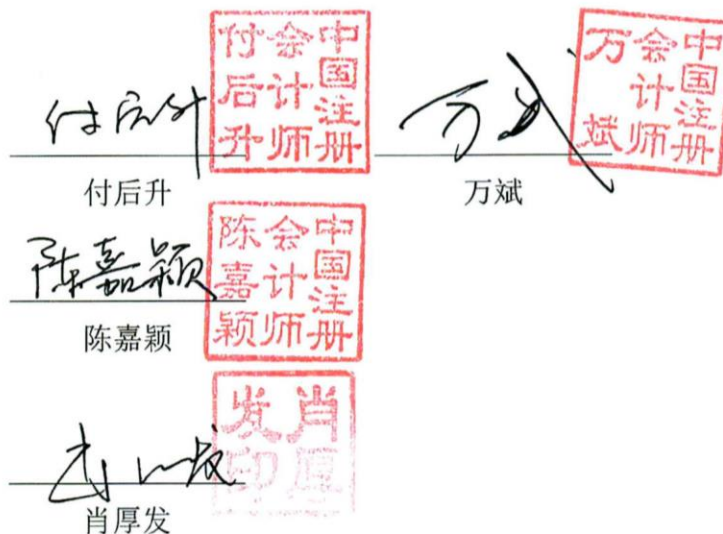 付后升
中国注册
会计师
付后升
万斌
中国注册
会计师
万斌
付后升
万斌
陈嘉颖
中国注册
会计师
陈嘉颖
陈嘉颖
肖厚发印
肖厚发